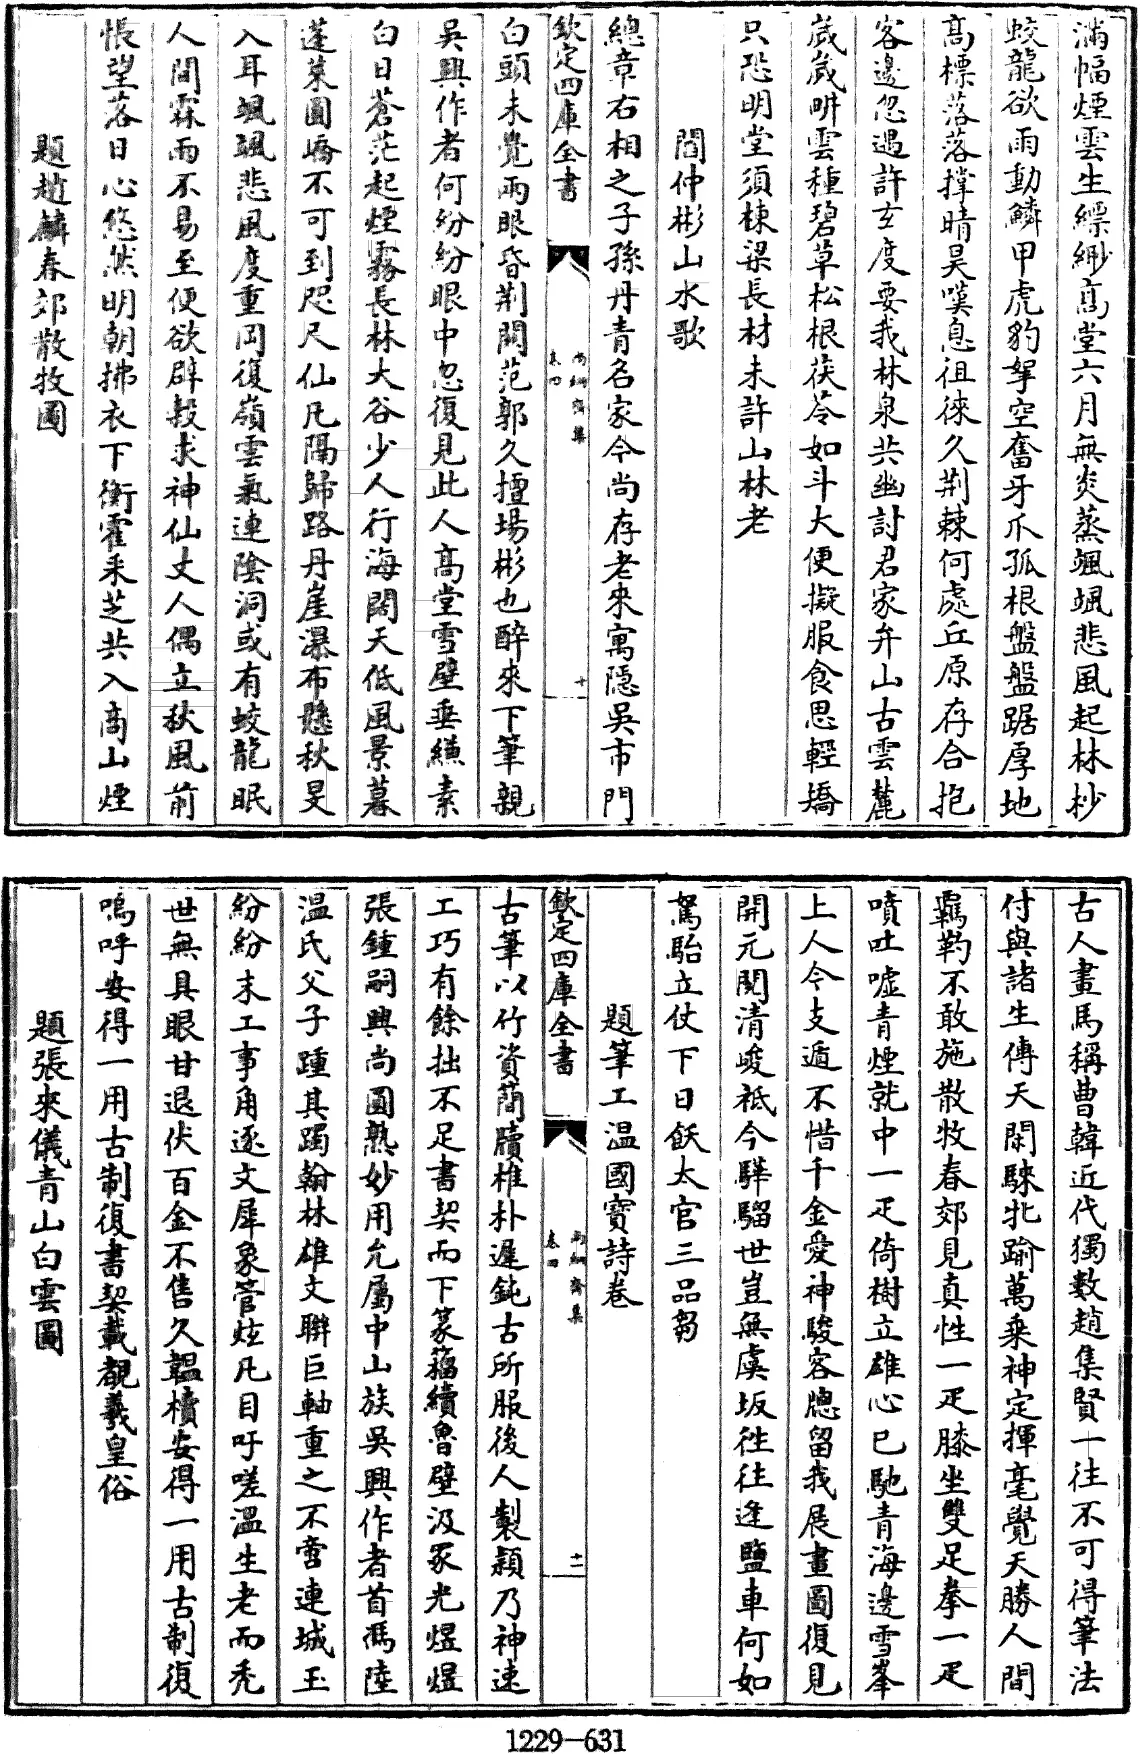 滿幅煙雲生縹緲高堂六月無炎蒸颯颯悲風起林杪
蛟龍欲雨動鱗甲虎豹拏空奮牙爪孤根盤盤踞厚地
高標落落撑晴昊嘆息徂徠久荆棘何處丘原存合抱
客邊忽遇許玄度要我林泉共幽討君家弁山古雲麓
歲歲畊雲種碧草松根茯苓如斗大便擬服食思輕矯
只恐明堂須棟梁長材未許山林老
閻仲彬山水歌
總章右相之子孫丹青名家今尚存老來寓隱吳市門
欽定四庫全書
尚絅齋集
卷四
十
白頭未覺兩眼昏荆關范郭久擅場彬也醉來下筆親
吳興作者何紛紛眼中忽復見此人高堂雪壁垂縑素
白日蒼茫起煙霧長林大谷少人行海闊天低風景暮
蓬萊圓嶠不可到咫尺仙凡隔歸路丹崖瀑布懸秋旻
入耳颯颯悲風度重岡復嶺雲氣連陰洞或有蛟龍眠
人間霖雨不易至便欲辟穀求神仙丈人偶立秋風前
悵望落日心悠然明朝拂衣下衡霍采芝共入商山煙
題趙麟春郊散牧圖
古人畫馬稱曹韓近代獨數趙集賢一往不可得筆法
付與諸生傳天閑騋牝踰萬乘神定揮毫覺天勝人間
羈靮不敢施散牧春郊見真性一疋膝坐雙足拳一疋
噴吐噓青煙就中一疋倚樹立雄心已馳青海邊雪峯
上人今支遁不惜千金愛神駿容牕留我展畫圖復見
開元閱清峻祇今驊騮世豈無虞坂往往逢鹽車何如
駑駘立仗下日飫太官三品芻
題筆工温國寶詩卷
欽定四庫全書
尚絅齋集
卷四
十一
古筆以竹資蕳牘椎朴遲鈍古所服後人製穎乃神速
工巧有餘拙不足書契而下篆籀續魯壁汲冢光煜煜
張鍾嗣興尚圓熟妙用允屬中山族吳興作者首馮陸
温氏父子踵其躅翰林雄文聯巨軸重之不啻連城玉
紛紛末工事角逐文犀象管炫凡目吁嗟温生老而秃
世無具眼甘退伏百金不售久韞櫝安得一用古制復
嗚呼安得一用古制復書契載覩羲皇俗
題張來儀青山白雲圖
1229—631